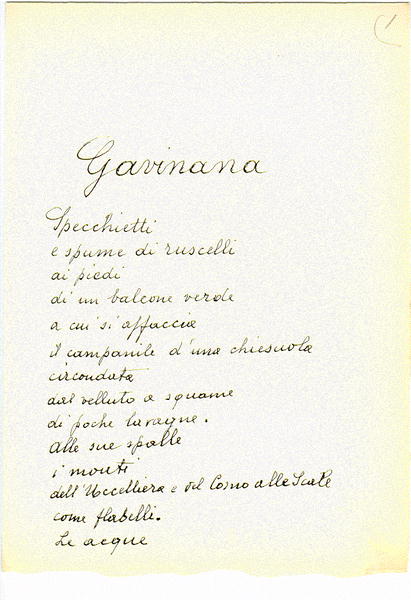 1
Gavinana
Specchietti
e spume di ruscelli
ai piedi
di un balcone verde
a cui si affaccia
il campanile d'una chiesuola
circondata
dal velluto a squame
di poche lavagne.
alle sue spalle
i monti
dell'Uccelliera e del Corno alle Scale
come flabelli.
Le acque